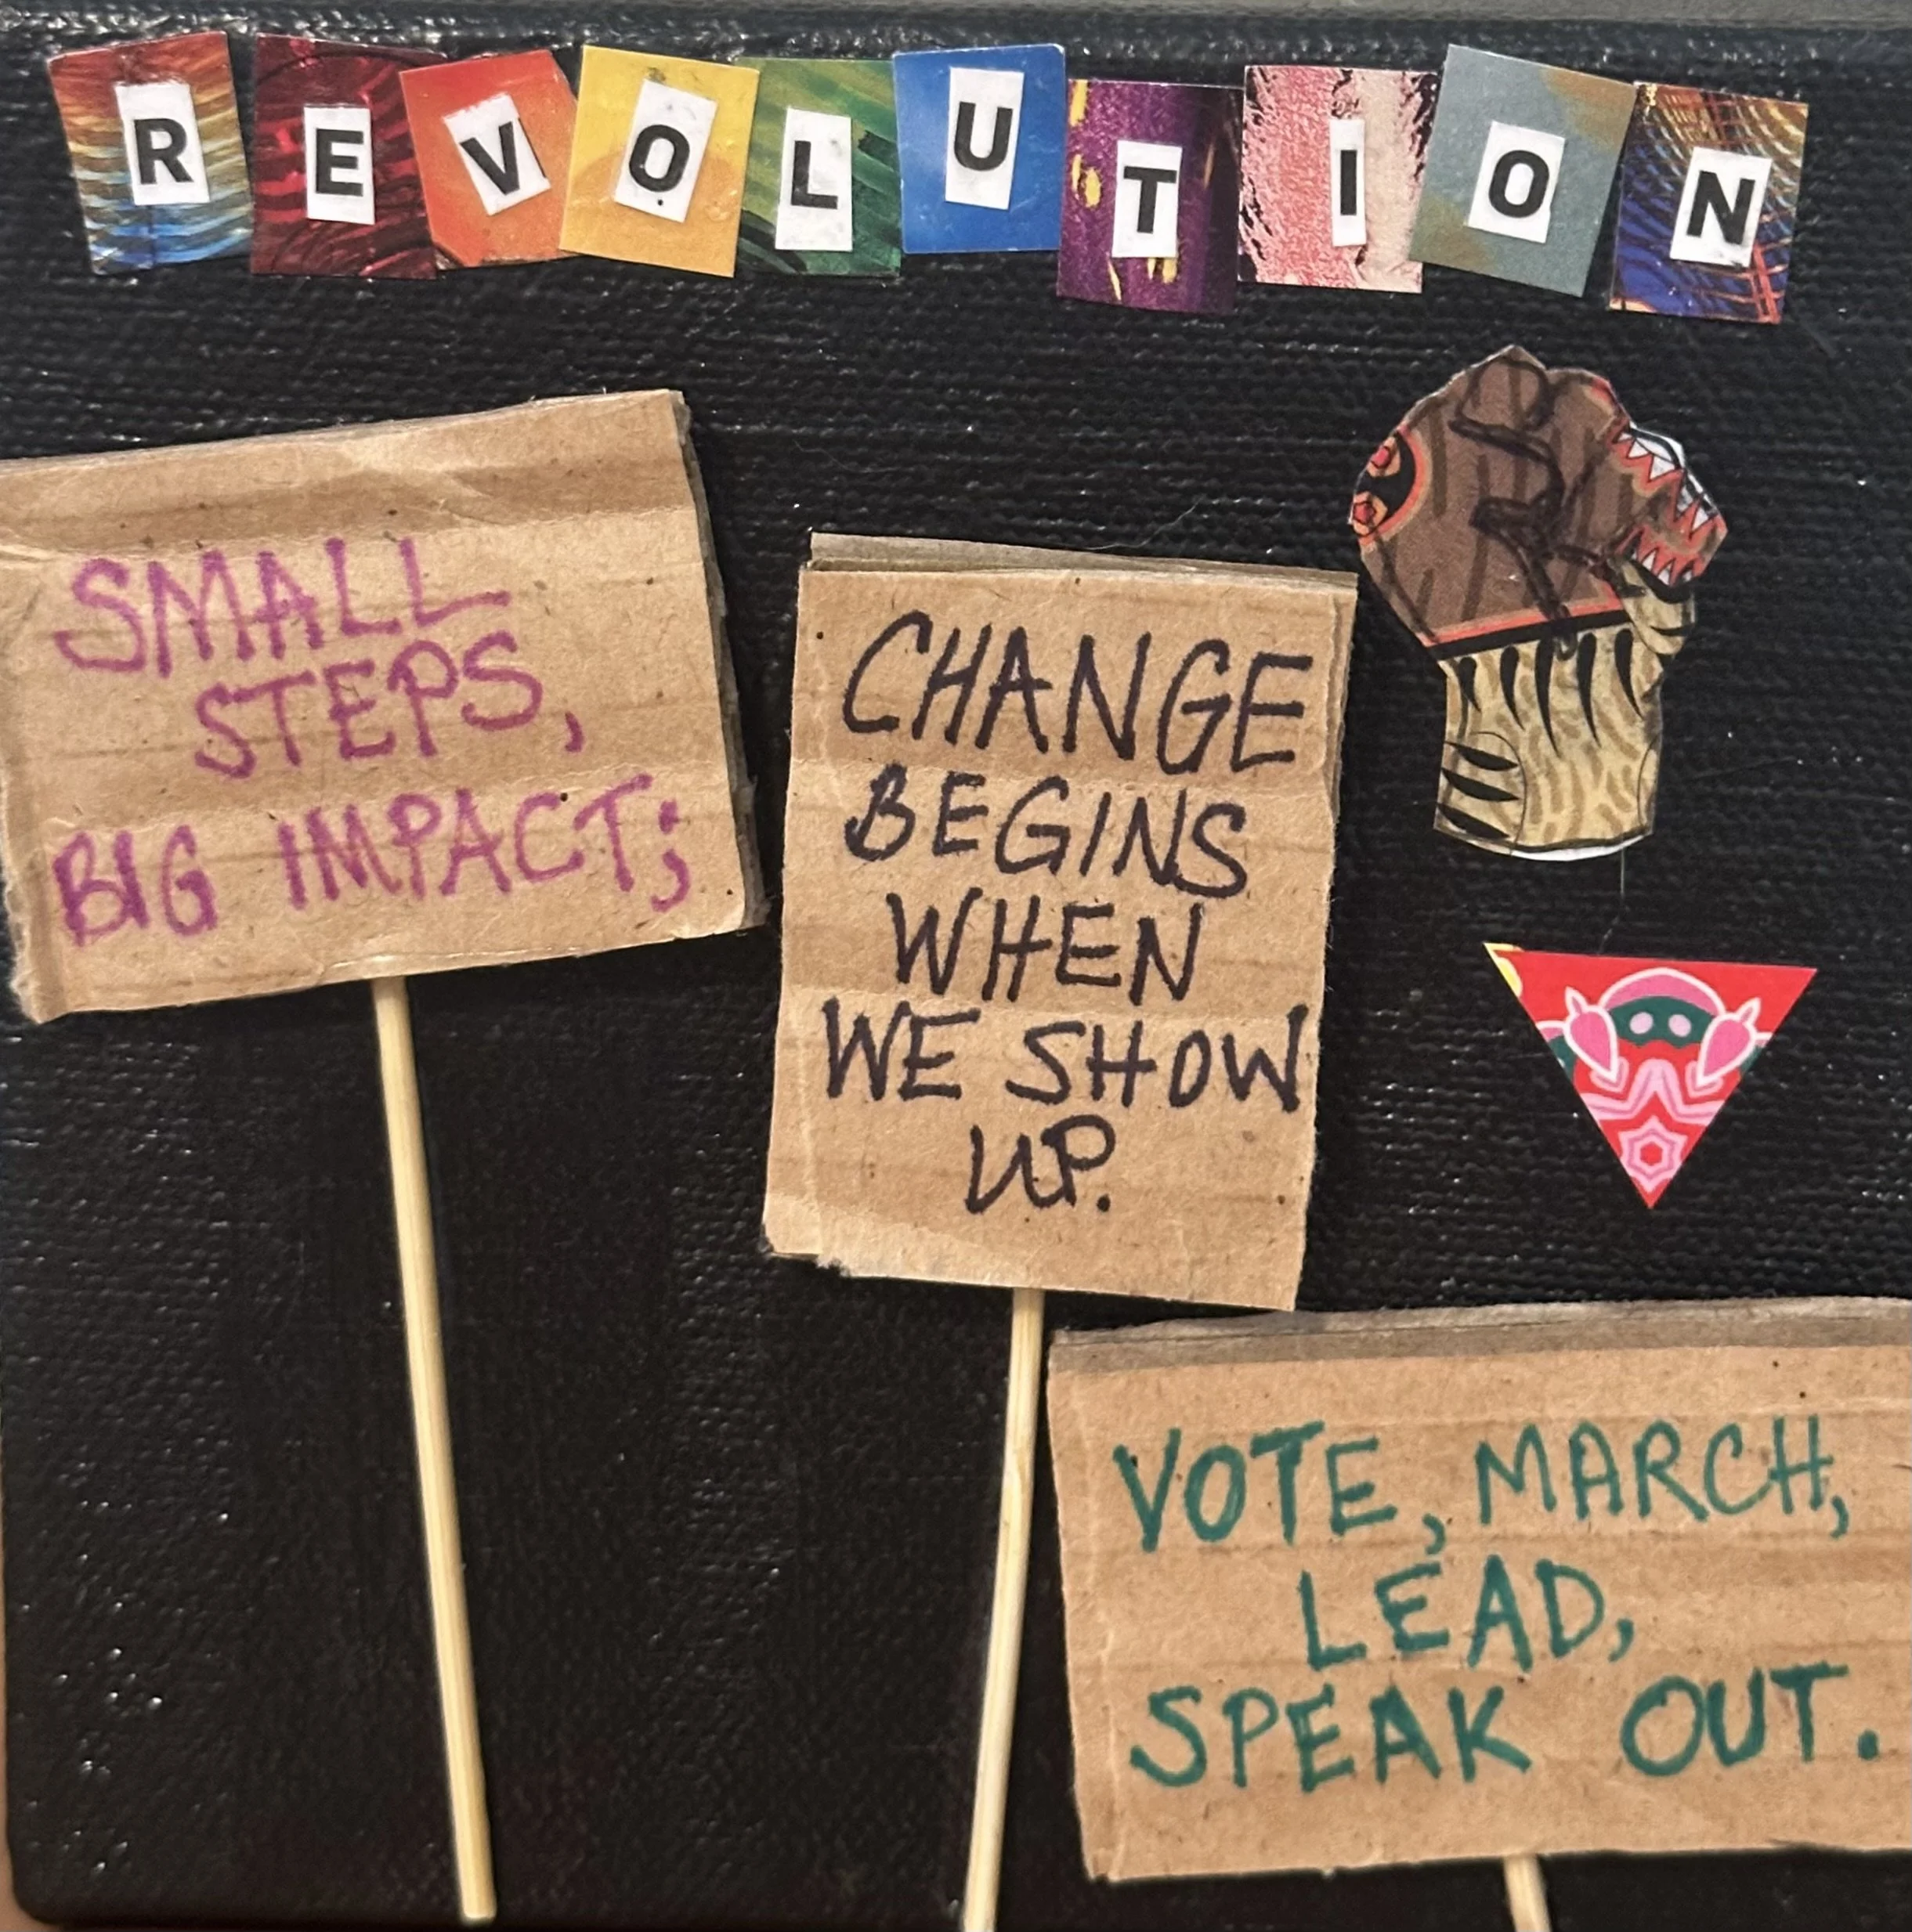 REVOLUTION
SMALL
STEPS,
BIG IMPACT;
CHANGE
BEGINS
WHEN
WE SHOW
UP.
VOTE, MARCH,
LEAD,
SPEAK OUT.